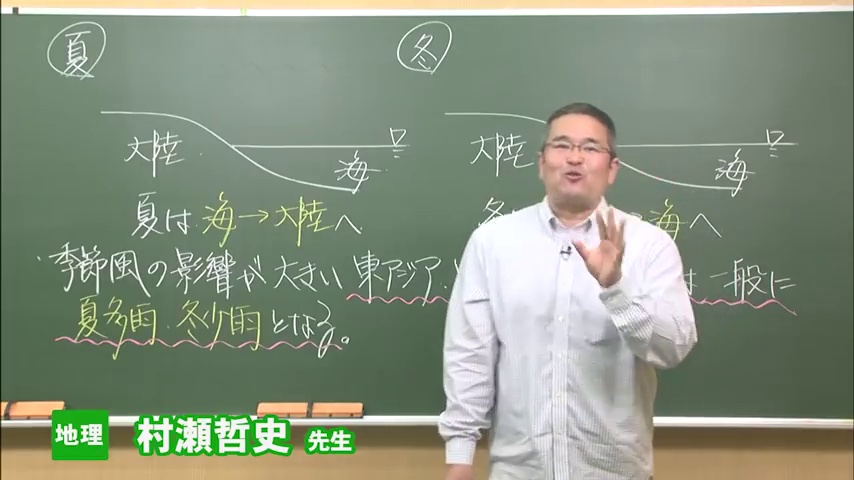 夏
冬
大陸
海
大陸
海
夏は 海→大陸へ
海へ
季節風の影響が大きい 東アジア は一般に
夏多雨・冬少雨となる。
地理 村瀬哲史 先生